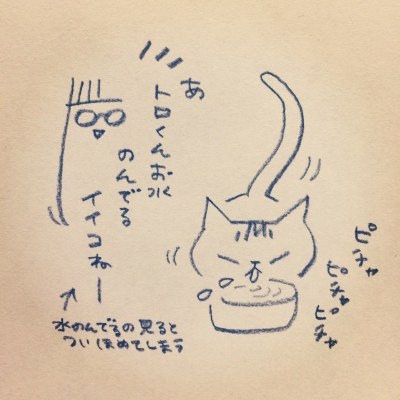 あ
トロくんお水
のんでる
イイコねー
ピチャ
ピチャ
ピチャ
水のんでるの見ると
ついほめてしまう